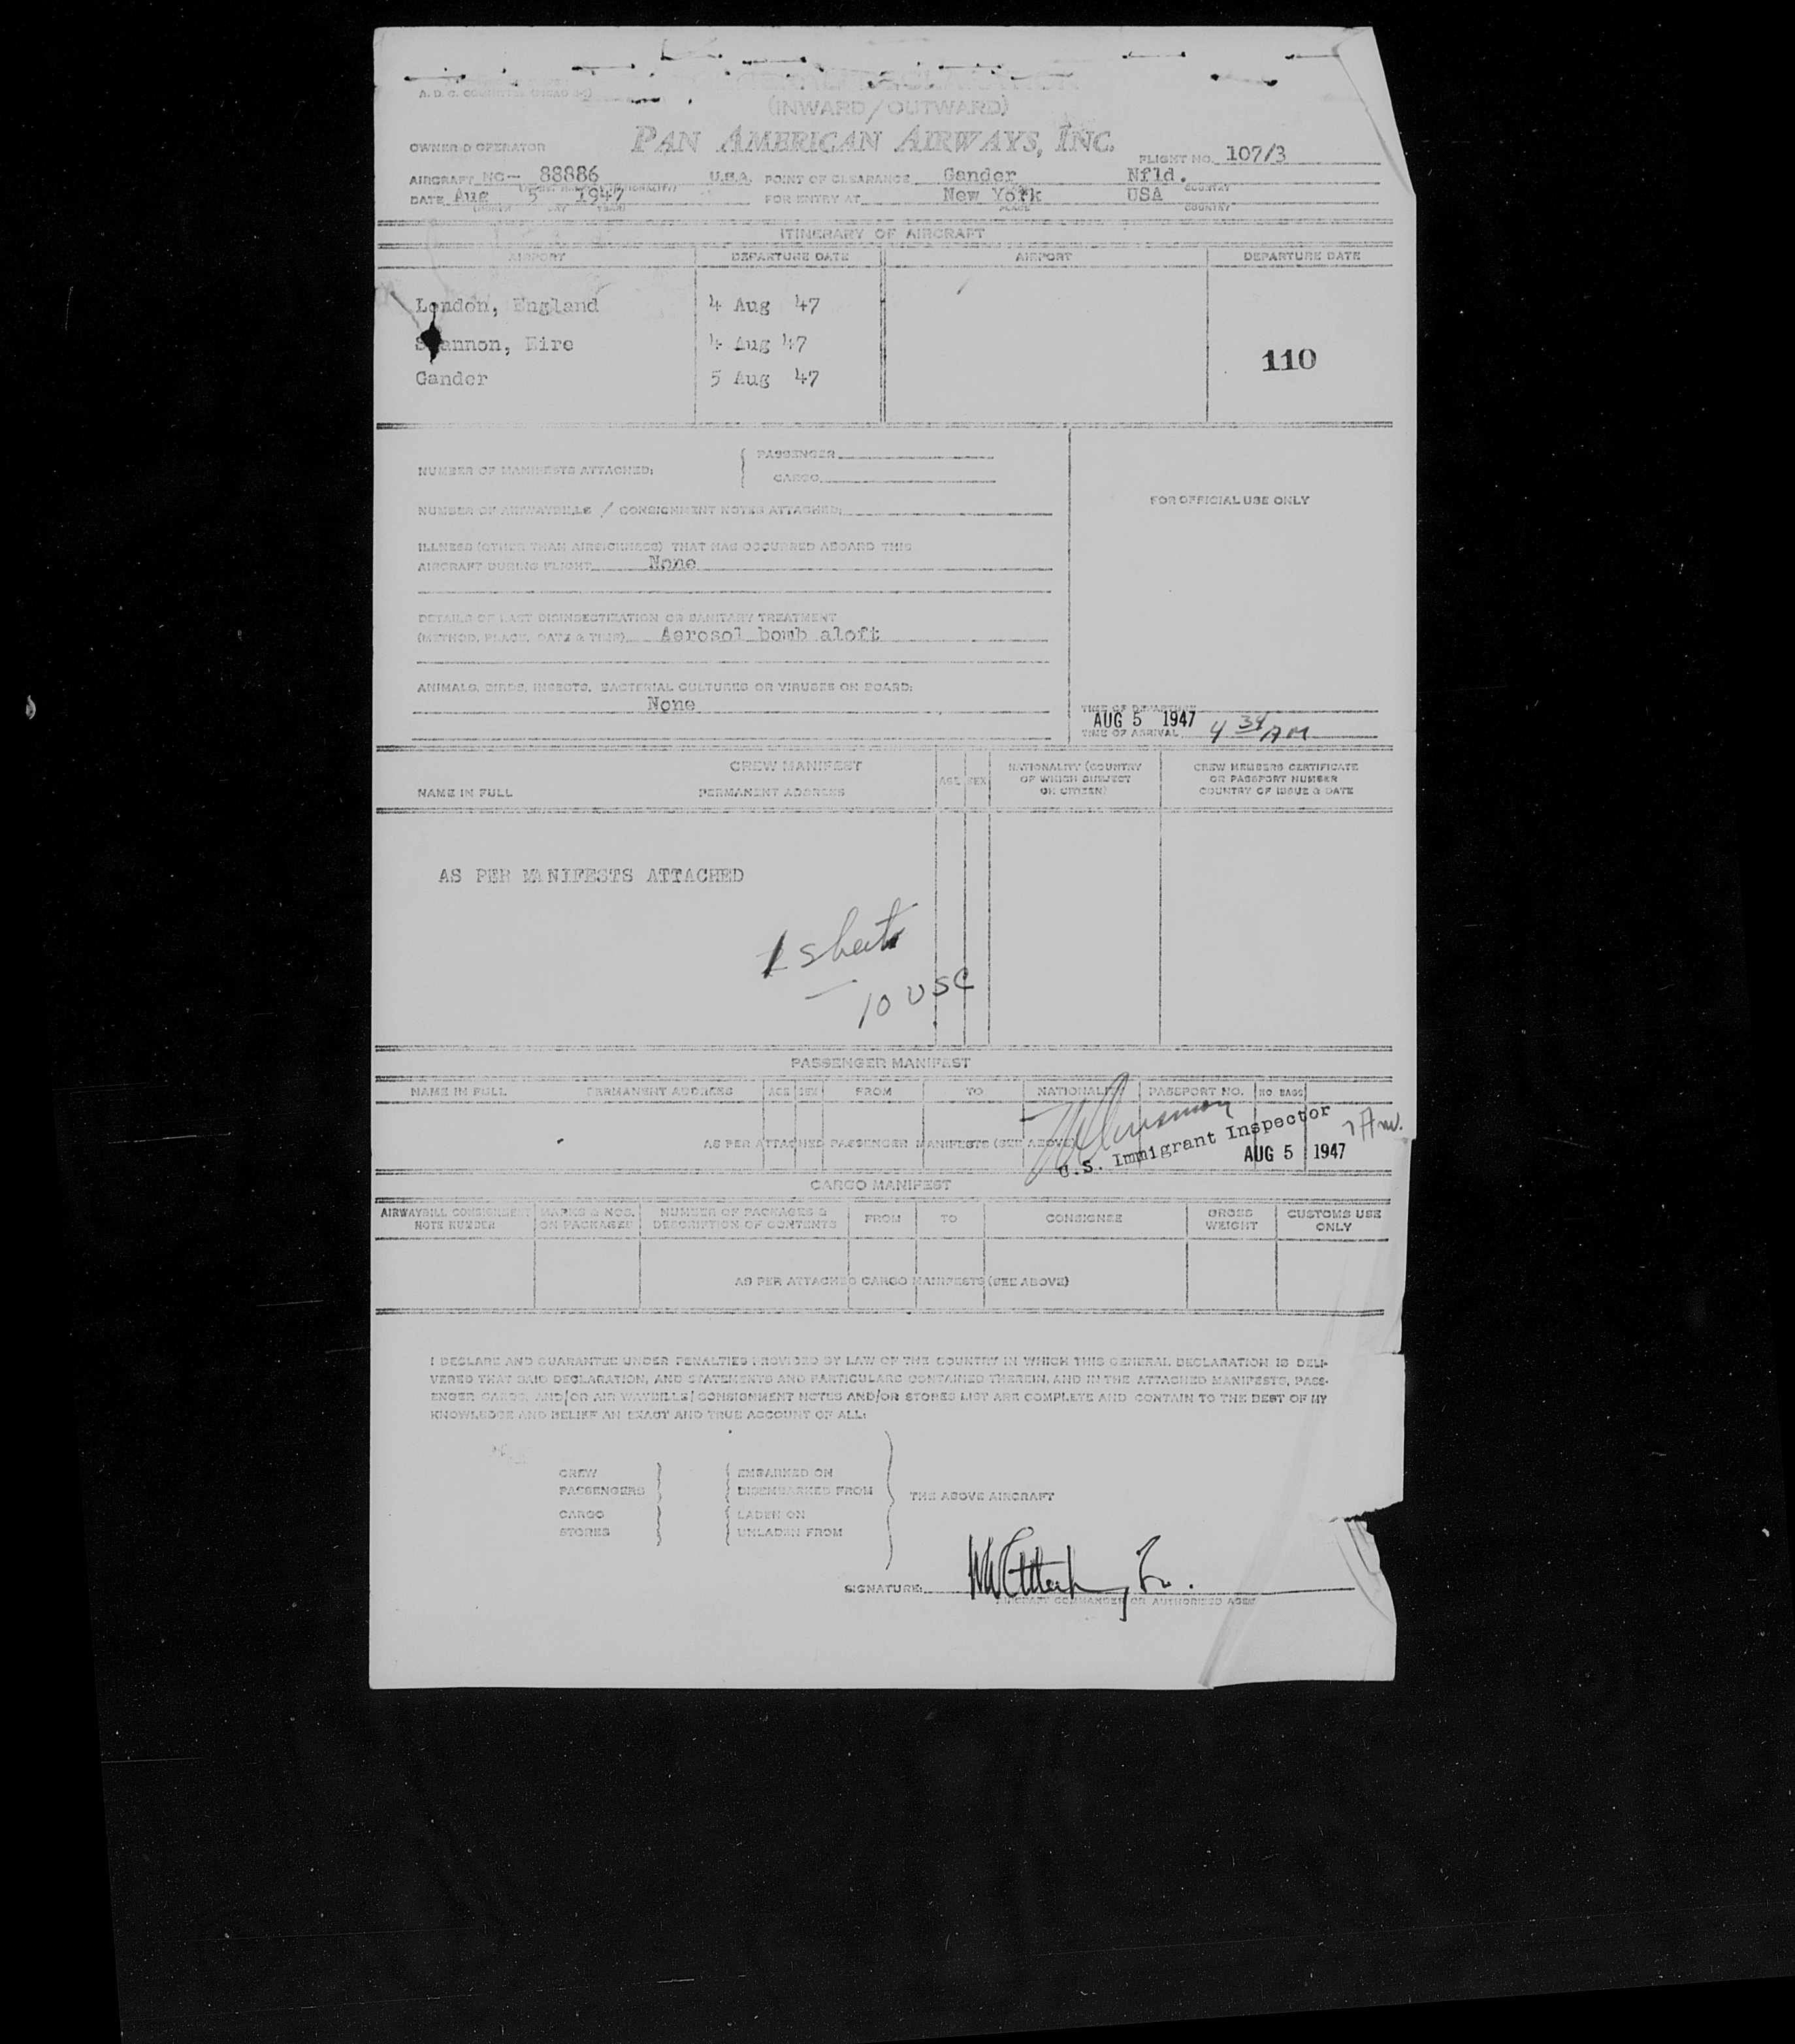 GENERAL DECLARATION
(INWARD/OUTWARD)
OWNER OPERATOR PAN AMERICAN AIRWAYS, INC. FLIGHT NO. 107/3
AIRCRAFT NC- 88886 U.S.A. POINT OF CLEARANCE Gander Nfld. COUNTRY
DATE Aug 5 1947 FOR ENTRY AT New York USA
(MONTH DAY YEAR) PLACE COUNTRY
ITINERARY OF AIRCRAFT
AIRPORT DEPARTURE DATE AIRPORT DEPARTURE DATE
London, England 4 Aug 47
Shannon, Eire 4 Aug 47
110
Gander 5 Aug 47
NUMBER OF MANIFESTS ATTACHED: PASSENGER
CARGO
FOR OFFICIAL USE ONLY
NUMBER OF AIRWAYBILLS / CONSIGNMENT NOTES ATTACHED:
ILLNESS (OTHER THAN AIRSICKNESS) THAT HAS OCCURRED ABOARD THIS
AIRCRAFT DURING FLIGHT None
DETAILS OF LAST DISINSECTIZATION OR SANITARY TREATMENT
(METHOD, PLACE, DATE & TIME) Aerosol bomb aloft
ANIMALS, BIRDS, INSECTS, BACTERIAL CULTURES OR VIRUSES ON BOARD:
None
TIME OF DEPARTURE
AUG 5 1947 4 34 AM
TIME OF ARRIVAL
CREW MANIFEST
NAME IN FULL PERMANENT ADDRESS AGE SEX NATIONALITY (COUNTRY OF WHICH SUBJECT OR CITIZEN) CREW MEMBERS CERTIFICATE OR PASSPORT NUMBER COUNTRY OF ISSUE & DATE
AS PER MANIFESTS ATTACHED
1 sheet
10 USC
PASSENGER MANIFEST
NAME IN FULL PERMANENT ADDRESS AGE SEX FROM TO NATIONALITY PASSPORT NO. NO BAGS
AS PER ATTACHED PASSENGER MANIFESTS (SEE ABOVE)
U.S. Immigrant Inspector
AUG 5 1947
CARGO MANIFEST
AIRWAYBILL CONSIGNMENT NOTE NUMBER MARKS & NOS. ON PACKAGES NUMBER OF PACKAGES & DESCRIPTION OF CONTENTS FROM TO CONSIGNEE GROSS WEIGHT CUSTOMS USE ONLY
AS PER ATTACHED CARGO MANIFESTS (SEE ABOVE)
I DECLARE AND GUARANTEE UNDER PENALTIES PROVIDED BY LAW OF THE COUNTRY IN WHICH THIS GENERAL DECLARATION IS DELI-
VERED THAT SAID DECLARATION, AND STATEMENTS AND PARTICULARS CONTAINED THEREIN, AND IN THE ATTACHED MANIFESTS, PASS-
ENGER CARGO, AND/OR AIR WAYBILLS/CONSIGNMENT NOTES AND/OR STORES LIST ARE COMPLETE AND CONTAIN TO THE BEST OF MY
KNOWLEDGE AND BELIEF AN EXACT AND TRUE ACCOUNT OF ALL:
CREW EMBARKED ON
PASSENGERS DISEMBARKED FROM THE ABOVE AIRCRAFT
CARGO LADEN ON
STORES UNLADEN FROM
SIGNATURE:
AIRCRAFT COMMANDER OR AUTHORISED AGENT